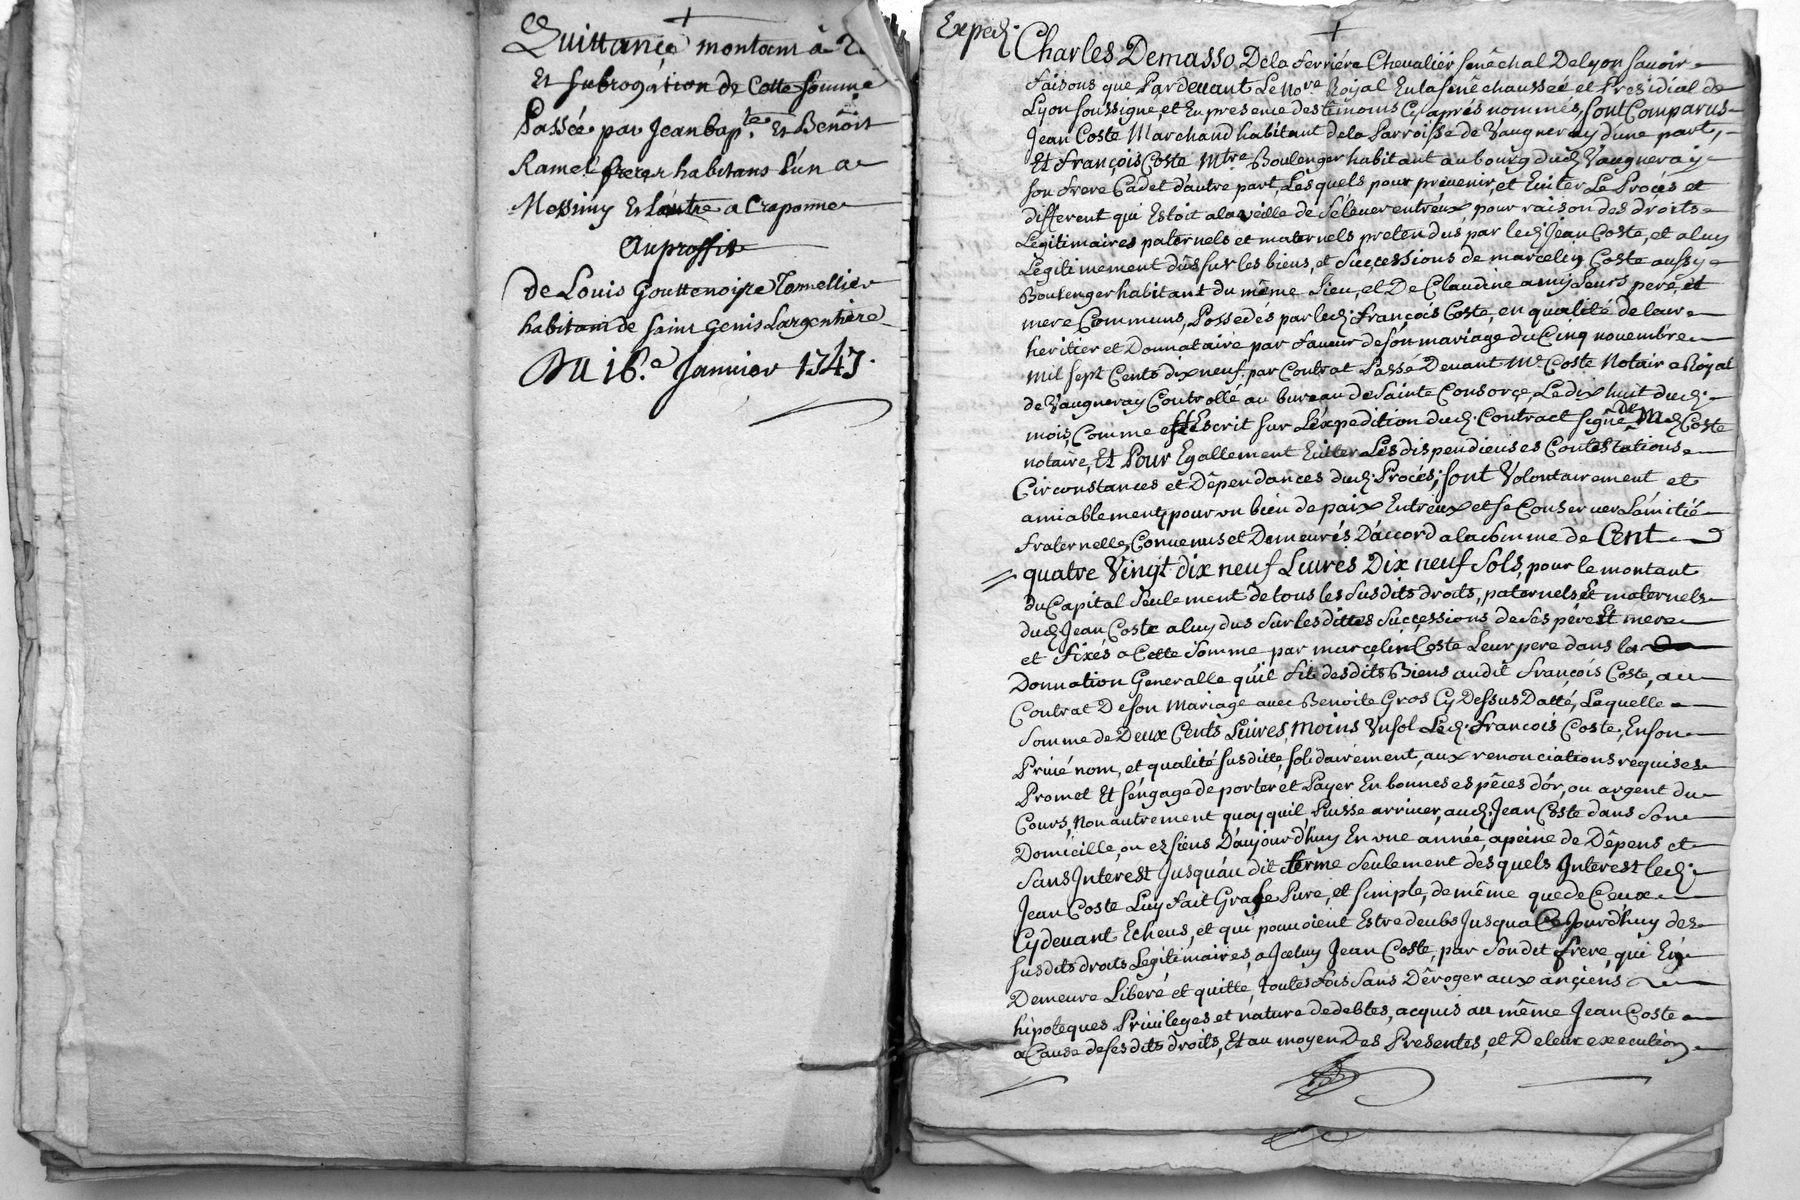 Quittance montant à
Et subrogation de Cette somme
Passée par Jean bap.te Et Benoît
Ramel freres habitans l'un a
Messimy Et L'autre a Craponne
Au proffit
de Louis Gouttenoire Tonnellier
habitant de Saint Genis Largentiere
Du 16.e Janvier 1747.
Exped.
Charles Demasso Dela ferriére Chevalier Senêchal De lyon Savoir
faisons que Pardevant Le No.re Royal En la senêchaussée et Présidial de
Lyon soussigné, et En presence des temoins Cy après nommés, sont Comparus
Jean Coste Marchand habitant de la Parroisse de Vaugneray d'une part,
Et François Coste M.tre Boulenger habitant au bourg dud. Vaugneray
son frere Cadet d'autre part, Lesquels pour prevenir, et Eviter Le Procés et
different qui Estoit a la veille de s'elever entr'eux pour raison des droits
Légitimaires paternels et maternels prétendus par led. Jean Coste, et a luy
Légitimement dûs sur les biens, et successions de marcelin Coste aussy
Boulenger habitant du même Lieu, et De Claudine amy Leurs pere, et
mere Communs, Possédés par led. françois Coste, en qualité de leur
heritier et Donnataire par faveur de son mariage du Cinq novembre
mil sept Cents dix neuf, par Contrat Passé Devant M.e Coste Notaire Royal
de Vaugneray Controllé au bureau de Sainte Consorçe, Le dix huit dud.
mois, Comme est Escrit sur L'éxpedition dud. Contract signé dud. Coste
notaire, Et Pour Egallement Eviter Les dispendieuses Contestations
Circonstances et Dépendances dud. Procés; sont Volontairement et
amiablement, pour un bien de paix Entr'eux et se Conserver L'amitié
fraternelle, Convenus et Demeurés D'accord a la somme de Cent
quatre Vingt dix neuf Livres Dix neuf sols, pour le montant
du Capital seulement de tous les susdits droits, paternels et maternels
dud. Jean Coste a luy dus sur lesdittes successions de ses pére Et mere
et fixés a Cette somme par marcelin Coste Leur pere dans la
Donnation Generalle qu'il fit desdits Biens audit françois Coste, au
Contrat De son Mariage avec Benoite Gros Cy Dessus Datté, Laquelle
somme de Deux Cents Livres, moins Un sol Led. François Coste, En son
Privé nom, et qualité susditte, solidairement, aux renonciations requises
Promet Et s'éngage de porter et Payer En bonnes espêces d'or, ou argent du
Cours, Non autrement quoy qu'il Puisse arriver, aud. Jean Coste dans son
Domicille, ou es siens D'aujourd'huy En une année, a peine de Dépens et
sans Interest Jusqu'au dit terme seulement desquels Interest led.
Jean Coste Luy fait Grace Pure, et simple, de même que de Ceux
Cy devant Echeus, et qui pouvoient Estre deubs Jusqua Ce Jourd'huy des
susdits droits Legitimaires, a Jceluy Jean Coste, par son dit frere, qui En
Demeure Liberé et quitte, toutes fois sans Dêroger aux ançiens
hipoteques Privileges et nature de debtes, acquis au même Jean Coste
a Cause de ses dits droits, Et au moyen Des Presentes, et De leur execution